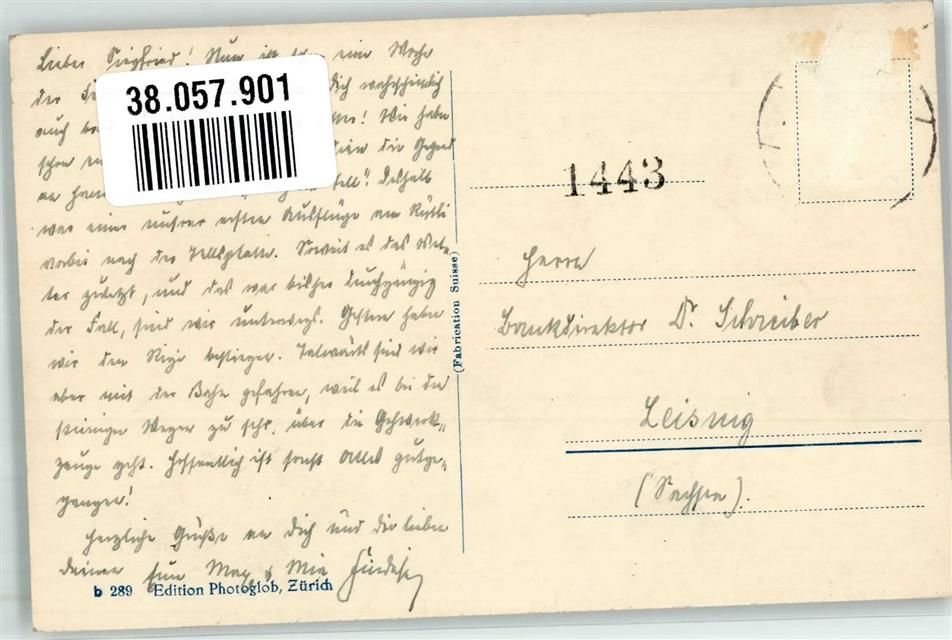 Lieber Siegfried! Nun ist eine Woche
der dich wahrscheinlich
auch Wir haben
schon die Gegend
an fall". Deshalb
war einer unsrer ersten Ausflüge am Rütli
vorbei nach der Tellsplatte. Soweit es das Wet-
ter zuläßt, und das war bisher durchgängig
der Fall, sind wir unterwegs. Gestern haben
wir den Rigi bestiegen. Talwärts sind wir
aber mit der Bahn gefahren, weil es bei den
steinigen Wegen zu sehr über die Gehwerk-
zeuge geht. Hoffentlich ist sonst Alles gutge-
gangen!
Herzliche Grüße an Dich und die lieben
Deinen Max & Mia
38.057.901
b 289 Edition Photoglob, Zürich
(Fabrication Suisse)
1443
Herrn
Bankdirektor Dr. Schreiber
Leisnig
(Sachsen).